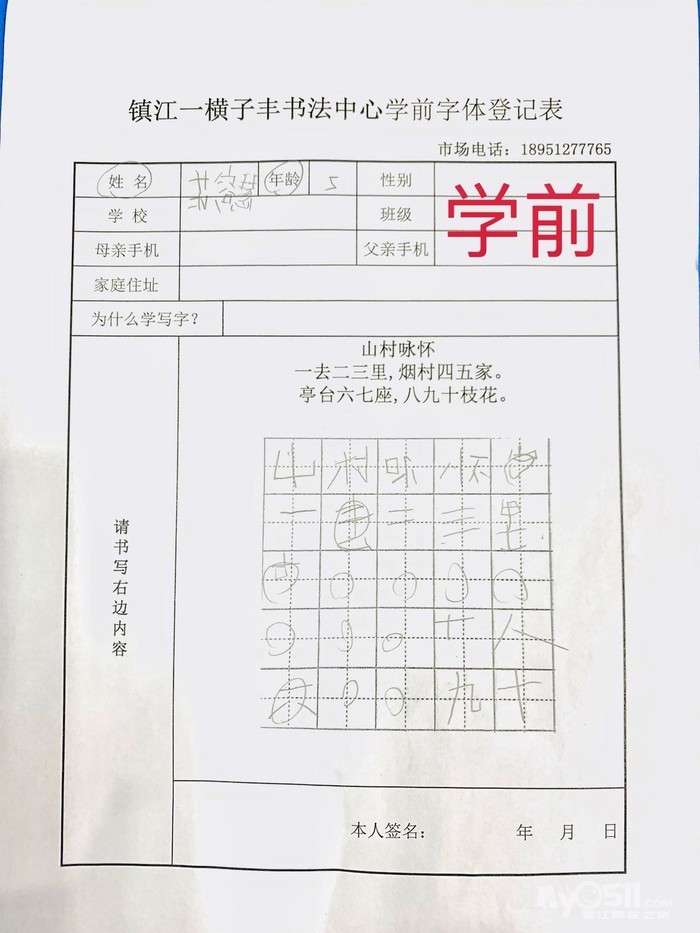 镇江一横子丰书法中心学前字体登记表
市场电话：18951277765
姓 名 年龄 5 性别
学 校 班级
学前
母亲手机 父亲手机
家庭住址
为什么学写字？
山村咏怀
一去二三里,烟村四五家。
亭台六七座,八九十枝花。
请书写右边内容
山 村 咏 怀
一 二 三 里
八
九 十
本人签名： 年 月 日
my0511.COM
镇江网友之家